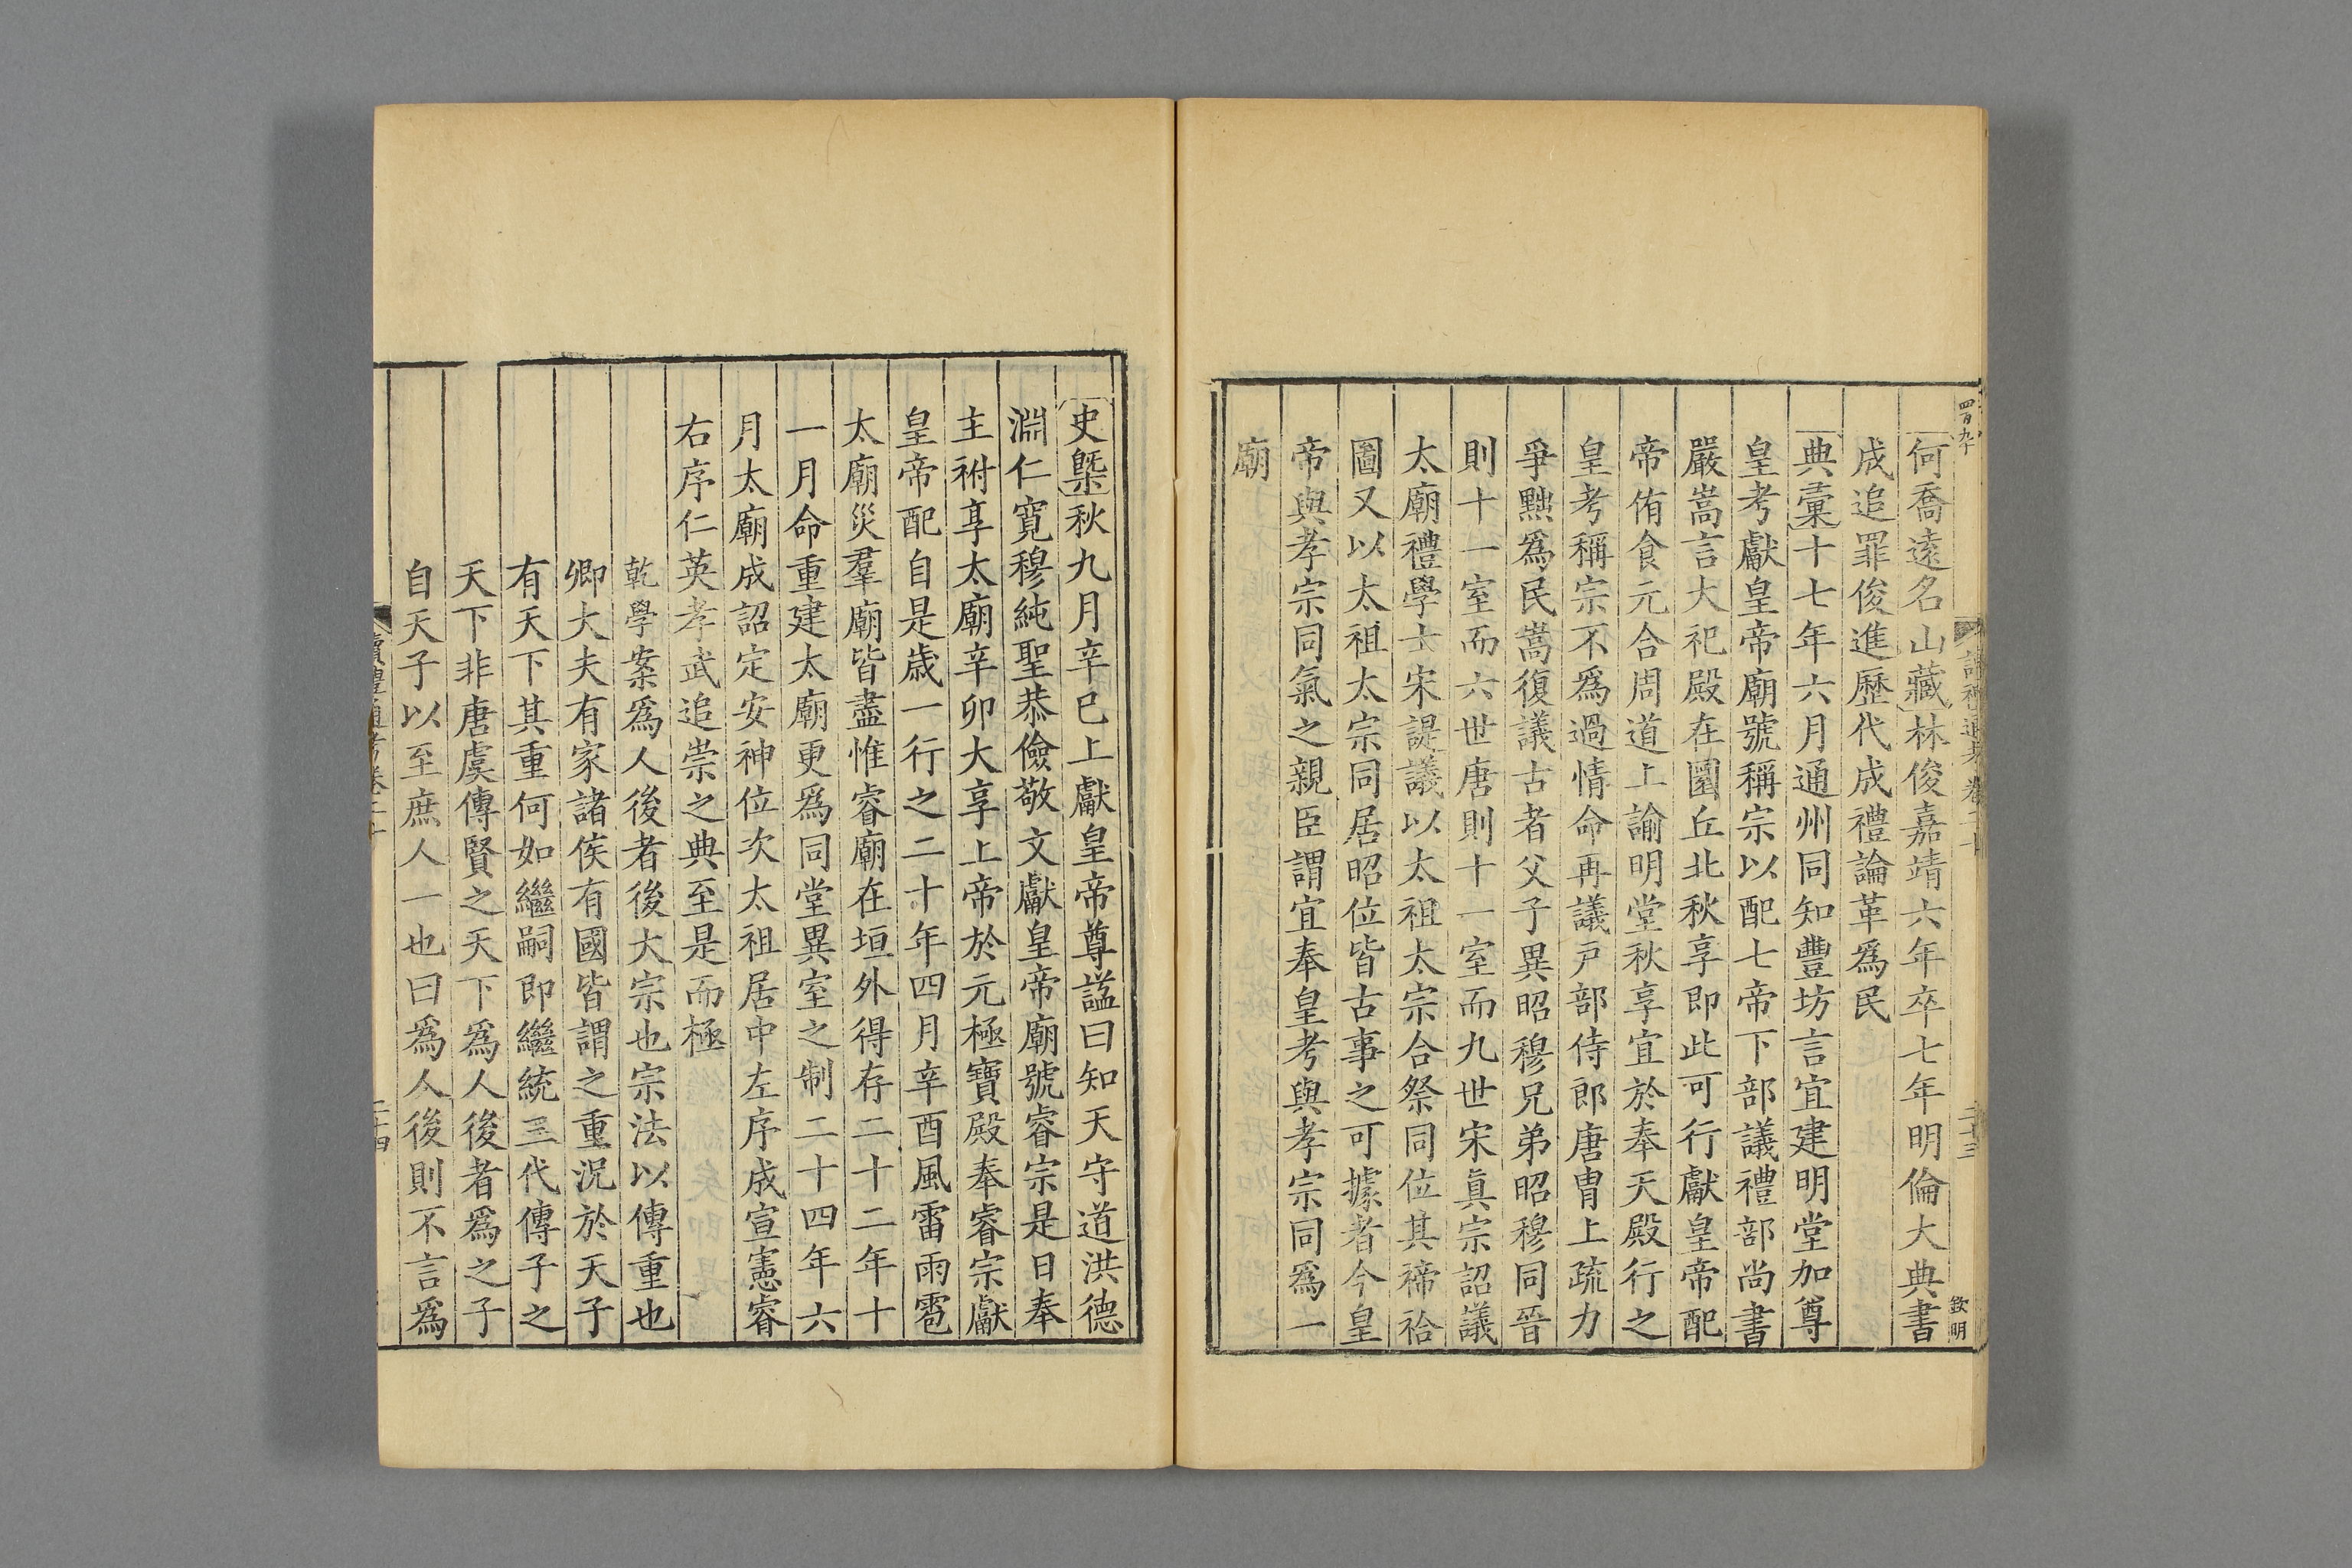 四百九十
讀禮通考卷二十
二十三
欽明
何喬遠名山藏林俊嘉靖六年卒七年明倫大典書
成追罪俊進歷代成禮論革爲民
典彙十七年六月通州同知豐坊言宜建明堂加尊
皇考獻皇帝廟號稱宗以配七帝下部議禮部尚書
嚴嵩言大祀殿在圜丘北秋享即此可行獻皇帝配
帝侑食元合周道上諭明堂秋享宜於奉天殿行之
皇考稱宗不爲過情命再議戸部侍郎唐冑上疏力
爭黜爲民嵩復議古者父子異昭穆兄弟昭穆同晉
則十一室而六世唐則十一室而九世宋眞宗詔議
太廟禮學士宋諟議以太祖太宗合祭同位其禘祫
圖又以太祖太宗同居昭位皆古事之可據者今皇
帝與孝宗同氣之親臣謂宜奉皇考與孝宗同爲一
廟
史槩秋九月辛巳上獻皇帝尊諡曰知天守道洪德
淵仁寬穆純聖恭儉敬文獻皇帝廟號睿宗是日奉
主祔享太廟辛卯大享上帝於元極寶殿奉睿宗獻
皇帝配自是歳一行之二十年四月辛酉風雷雨雹
太廟災羣廟皆盡惟睿廟在垣外得存二十二年十
一月命重建太廟更爲同堂異室之制二十四年六
月太廟成詔定安神位次太祖居中左序成宣憲睿
右序仁英孝武追崇之典至是而極
乾學案爲人後者後大宗也宗法以傳重也
卿大夫有家諸侯有國皆謂之重況於天子
有天下其重何如繼嗣即繼統三代傳子之
天下非唐虞傳賢之天下爲人後者爲之子
自天子以至庶人一也曰爲人後則不言爲
讀禮通考卷二十
二十四